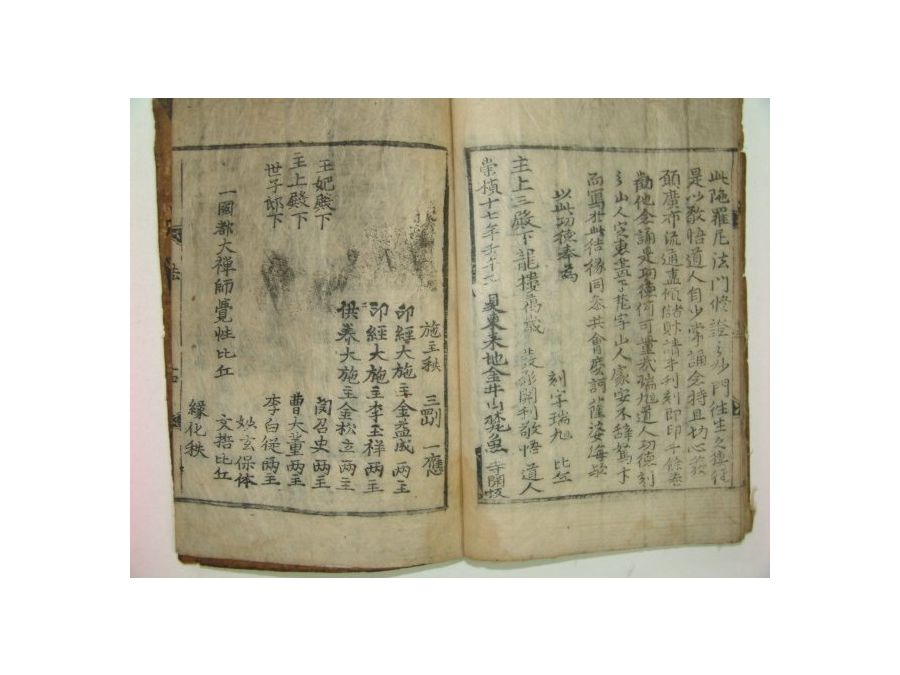 此陁羅尼法門修證之妙門往生之徑
是以敬悟道人自少常誦念持且切心發
願廣布流通盡傾儲財請手刻即印千餘卷
勸他念誦是功德何可量哉瑞旭道人功德刻
山人家安不辭駑下
而寫於此結緣同參共會摩訶薩婆海歟
以此功德奉爲 刻字瑞旭 比丘
主上三殿下龍樓萬歲 開刊敬悟 道人
崇禎十七年 東萊地金井山梵魚寺開板
施主秩 三剛 一應
印經大施主金益成 兩主
印經大施主李玉祥 兩主
供養大施主金松立 兩主
王妃殿下 閔召史 兩主
主上殿下 曹大董 兩主
世子邸下 李白從 兩主
妙玄保体
一國都大禪師覺性比丘 文哲比丘
緣化秩